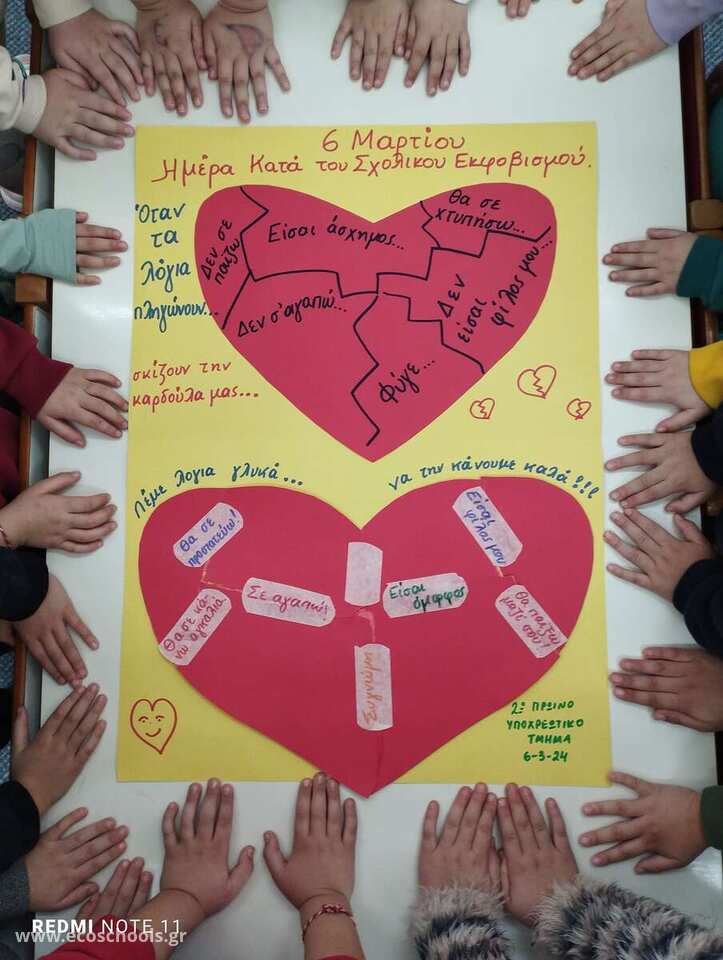 6 Μαρτίου
Ημέρα Κατά του Σχολικού Εκφοβισμού.
Όταν
τα
λόγια
πληγώνουν...
σκίζουν την
καρδούλα μας...
Δεν σε
παίζω
Είσαι άσχημος...
Θα σε
χτυπήσω...
Δεν σ'αγαπώ...
Φύγε...
Δεν
είσαι
φίλος μου...
Πέμε λόγια γλυκά...
να την κάνουμε καλά!!!
Θα σε
προστατεύω!
Θα σε κά-
νω αγκαλιά
Σε αγαπώ!
Είσαι
όμορφος
Είσαι
φίλος μου
Θα παίξω
μαζί σου!
Συγνώμη
2ο ΠΡΩΙΝΟ
ΥΠΟΧΡΕΩΤΙΚΟ
ΤΜΗΜΑ
6-3-24
REDMI NOTE 11
www.ecoschools.gr